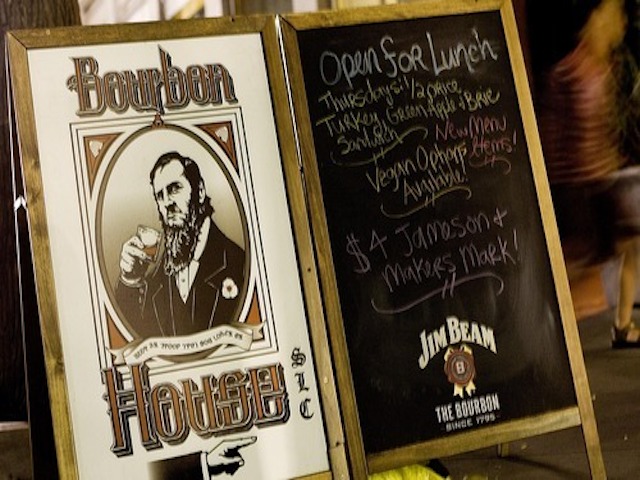 Bourbon
House
SLC
Open for Lunch
Thursdays: 1/2 price
Turkey, Green Apple & Brie
Sandwich
New Menu
Items!
Vegan Options
Available!
$4 Jameson +
Makers Mark!
JIM BEAM
B
THE BOURBON
SINCE 1795